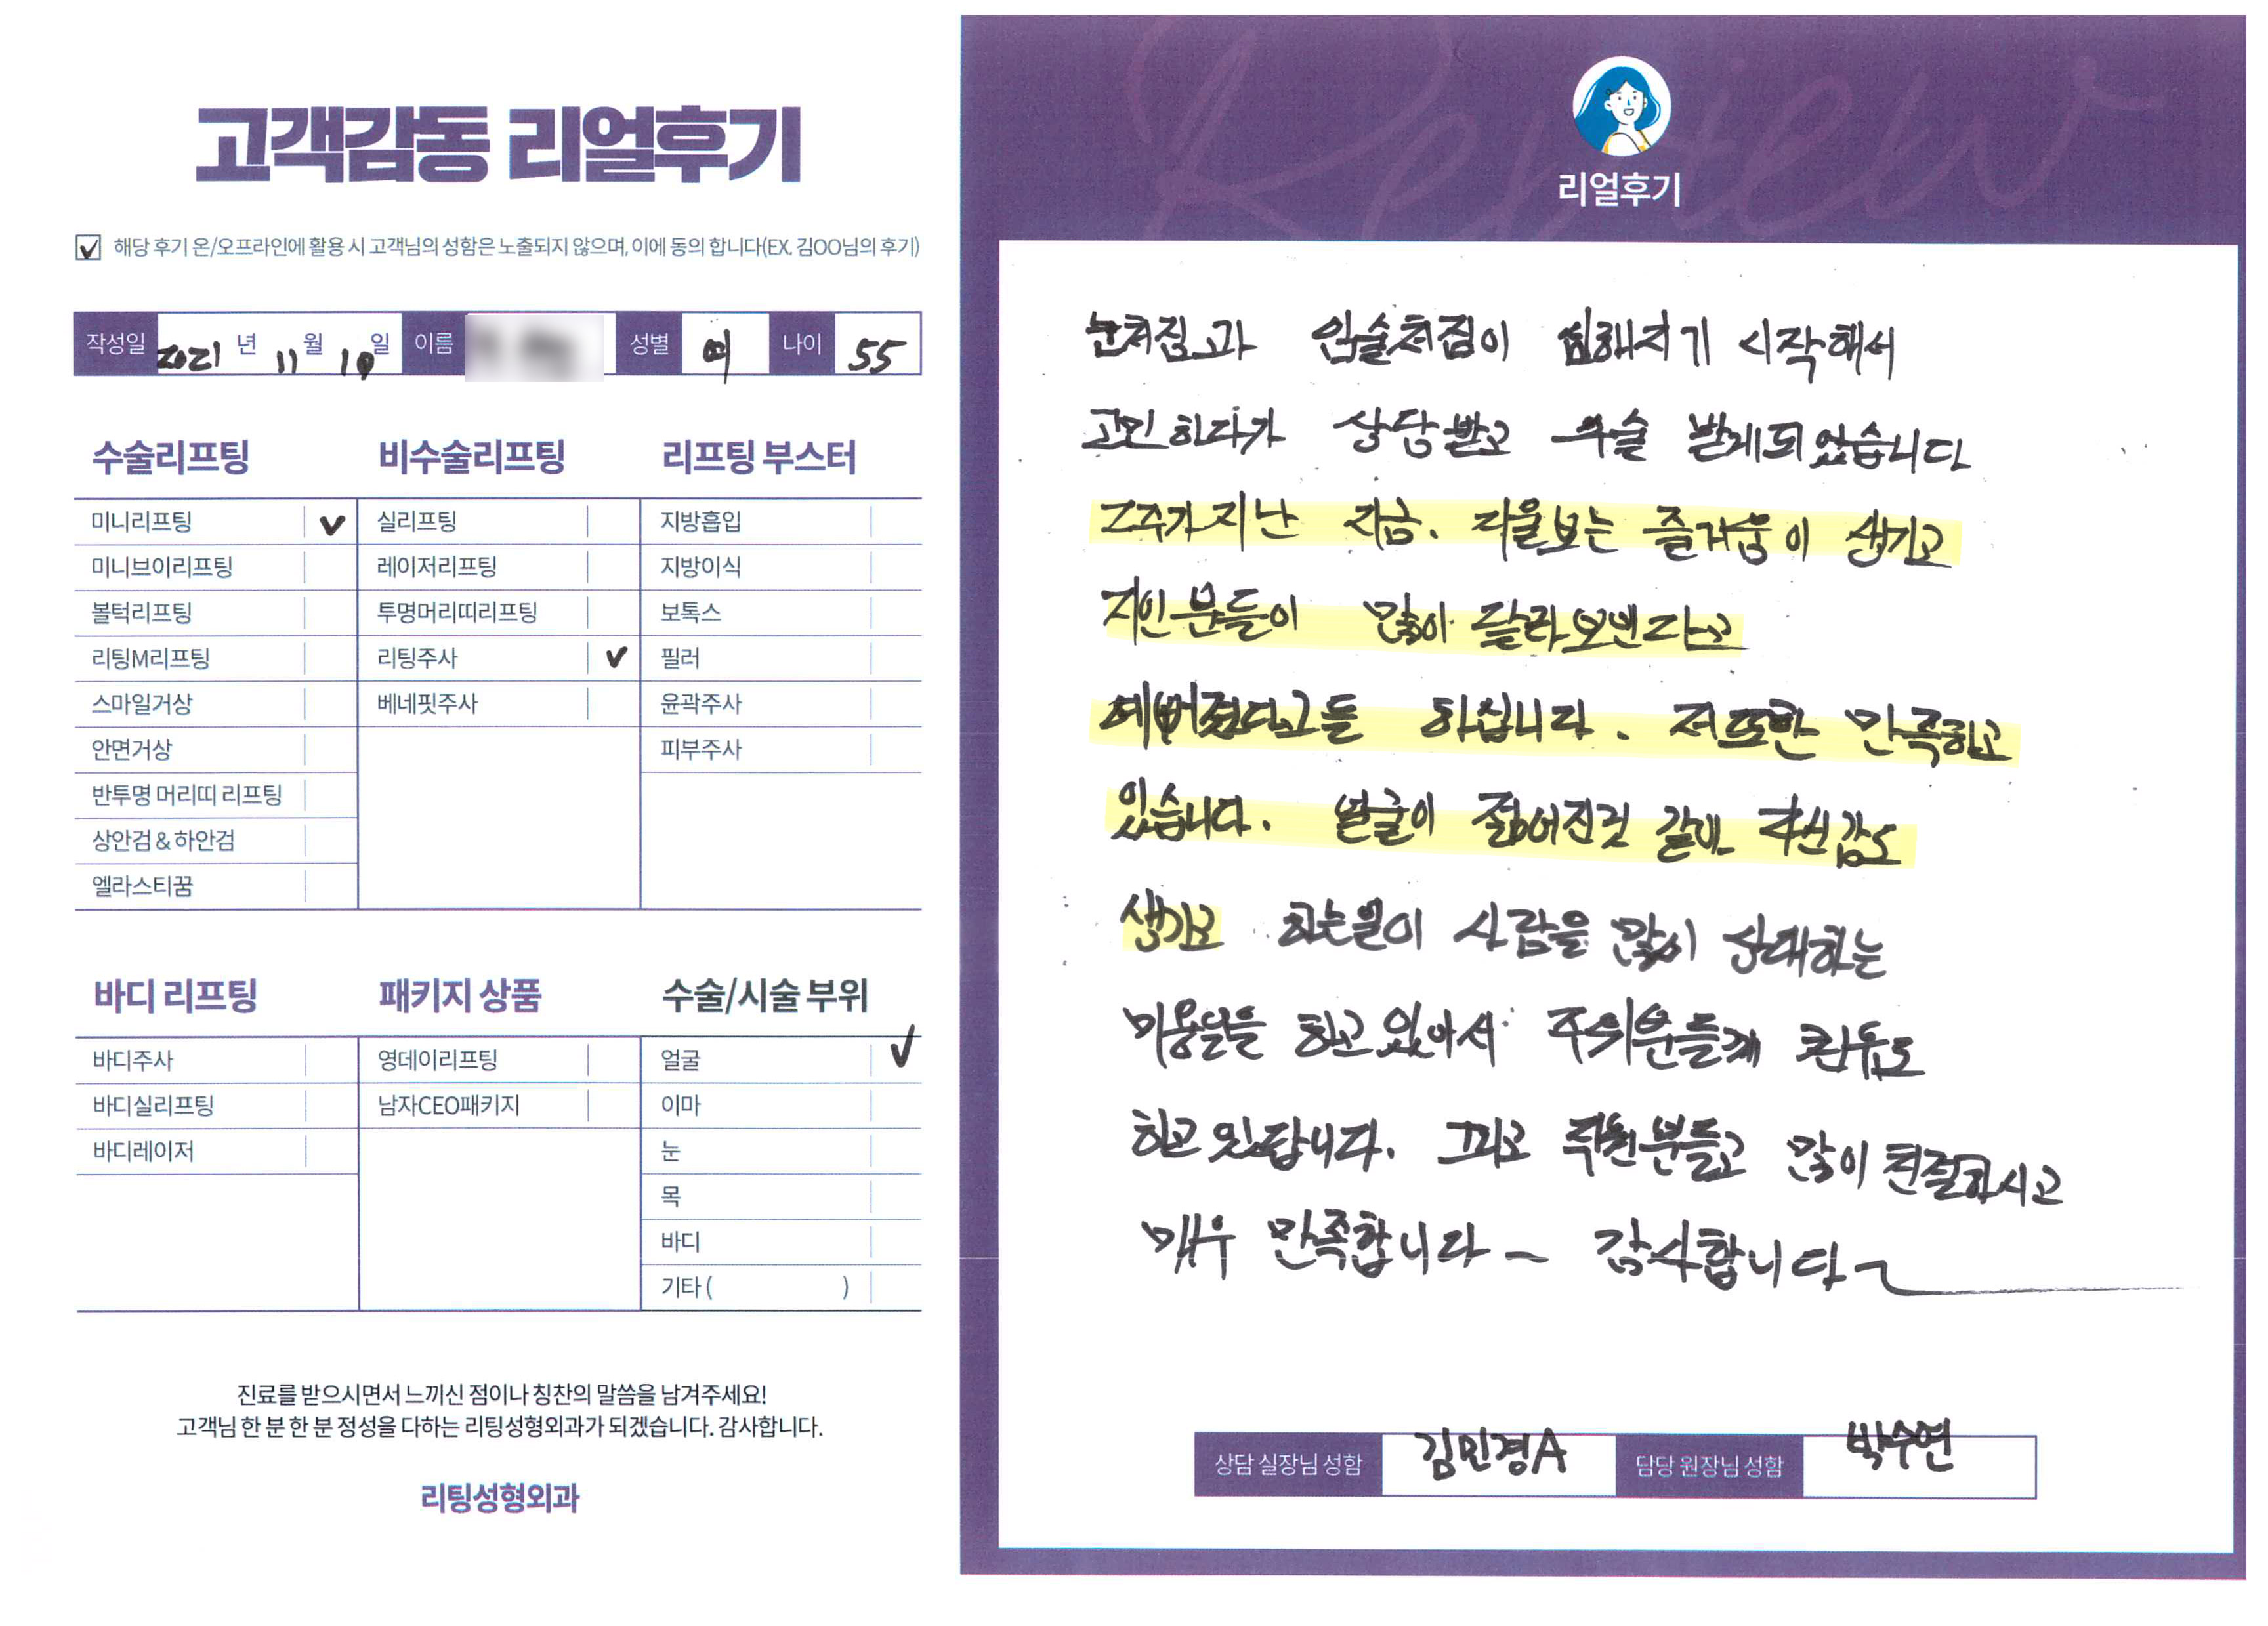 고객감동 리얼후기
해당 후기 온/오프라인에 활용 시 고객님의 성함은 노출되지 않으며, 이에 동의 합니다(EX. 김OO님의 후기)
작성일 2021 년 11 월 10 일 이름 성별 여 나이 55
수술리프팅
미니리프팅
미니브이리프팅
볼턱리프팅
리팅M리프팅
스마일거상
안면거상
반투명 머리띠 리프팅
상안검 & 하안검
엘라스티꿈
비수술리프팅
실리프팅
레이저리프팅
투명머리띠리프팅
리팅주사
베네핏주사
리프팅 부스터
지방흡입
지방이식
보톡스
필러
윤곽주사
피부주사
바디 리프팅
바디주사
바디실리프팅
바디레이저
패키지 상품
영데이리프팅
남자CEO패키지
수술/시술 부위
얼굴
이마
눈
목
바디
기타 ( )
진료를 받으시면서 느끼신 점이나 칭찬의 말씀을 남겨주세요!
고객님 한 분 한 분 정성을 다하는 리팅성형외과가 되겠습니다. 감사합니다.
리팅성형외과
Review
리얼후기
눈쳐짐과 입술쳐짐이 심해지기 시작해서
고민하다가 상담받고 수술 받게되었습니다
2주가지난 지금. 거울보는 즐거움이 생기고
지인분들이 많이 달라보인다고
예뻐졌다고들 하십니다. 저또한 만족하고
있습니다. 얼굴이 젊어진것 같아 자신감도
생기고 하는일이 사람을 많이 상대하는
미용일을 하고있어서 주위분들께 권유도
하고있답니다. 그리고 직원분들도 많이 친절하시고
매우 만족합니다~ 감사합니다~
상담 실장님 성함 김민경A 담당 원장님 성함 박수연